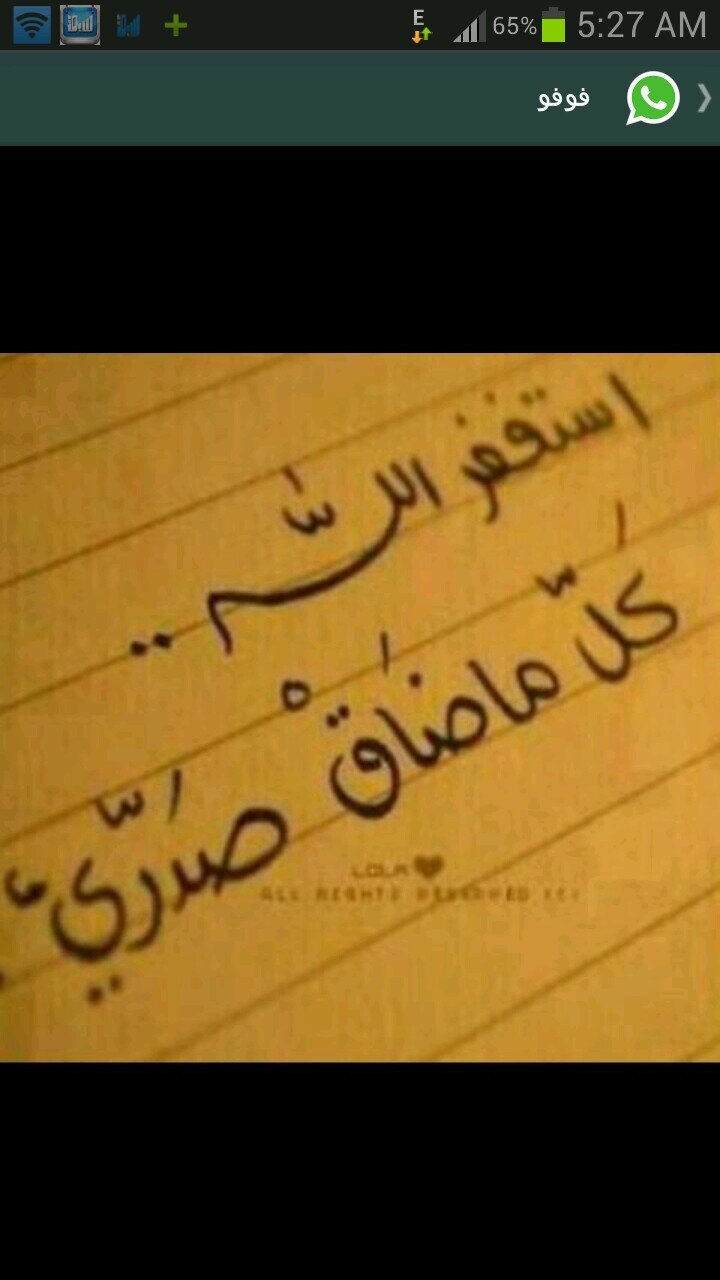 65% 5:27 AM
فوفو
استغفر الله ..
كلّ ما ضاق صدري
LOLA
ALL RIGHTS RESERVED (C)